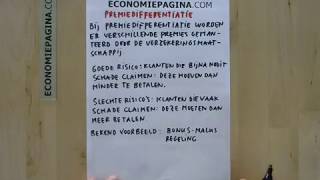 ECONOMIEPAGINA.COM
PREMIEDIFFERENTIATIE
BIJ PREMIEDIFFERENTIATIE WORDEN
ER VERSCHILLENDE PREMIES GEHAN-
TEERD DOOR DE VERZEKERINGSMAAT-
SCHAPPIJ
GOEDE RISICO'S: KLANTEN DIE BIJNA NOOIT
SCHADE CLAIMEN: DEZE MOETEN DAN
MINDER TE BETALEN.
SLECHTE RISICO'S: KLANTEN DIE VAAK
SCHADE CLAIMEN: DEZE MOETEN DAN
MEER BETALEN
BEKEND VOORBEELD: BONUS-MALUS
REGELING
ECONOMIEPAGINA.COM